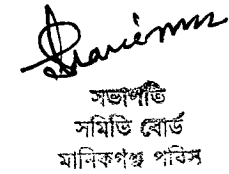 সভাপতি
সমিতি বোর্ড
মানিকগঞ্জ পবিস